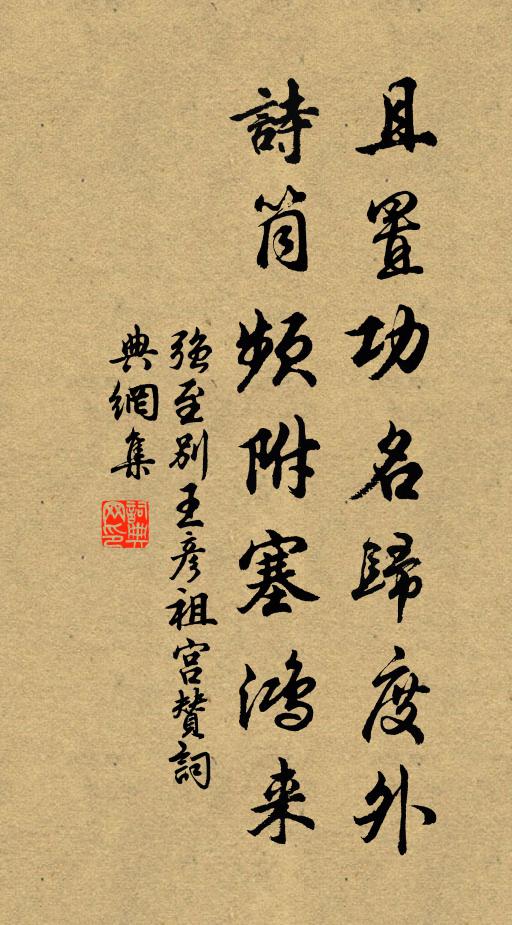 且置功名歸度外
詩筒頻附塞鴻来
強至別王彦祖宮贊詞
典網集
詞典網印